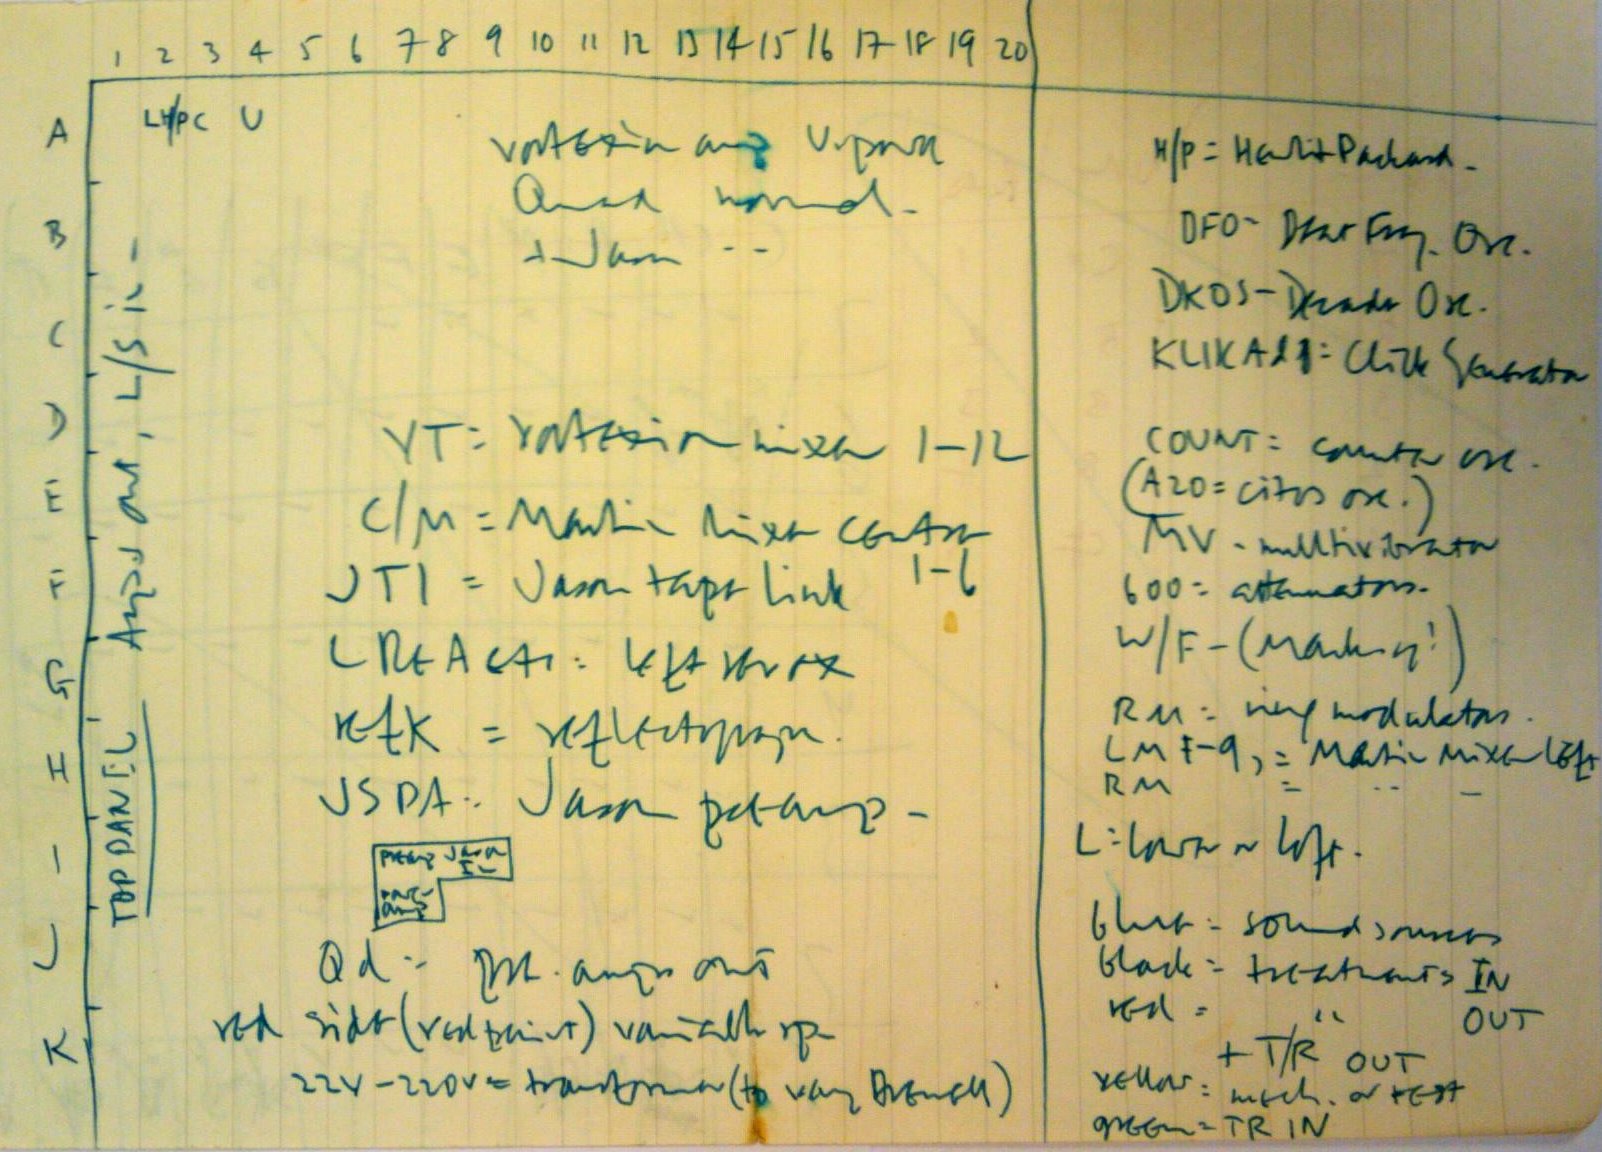 1 2 3 4 5 6 7 8 9 10 11 12 13 14 15 16 17 18 19 20
A B C D E F G H I J K
TOP PANEL Amps out, L/S in -
LH/PC U
vortexion amp
Quad normal -
+ Jason - -
VT = vortexion mixer 1-12
C/M = Martin Mixer center
1-6
JT1 = Jason tape link
= left revox
refk = reflectograph.
JSPA = Jason preamp -
preamp Jason
amp
Qd = amps out
red side (red paint) variable
22V - 220V = transformer (to vary Brenell)
H/P = Packard -
DFO - Freq. Osc.
DKOS - Decade Osc.
= Click Generator
COUNT = counter osc.
(A20 = osc.)
MV - multivibrator
600 = attenuators.
W/F -
RM = ring modulators.
LM F-9, = Martin Mixer Left
RM = - - -
L = lower or left.
blue = sound sources
black = treatments IN
red = " OUT
+ T/R OUT
yellow = mech. or test
green = TR IN